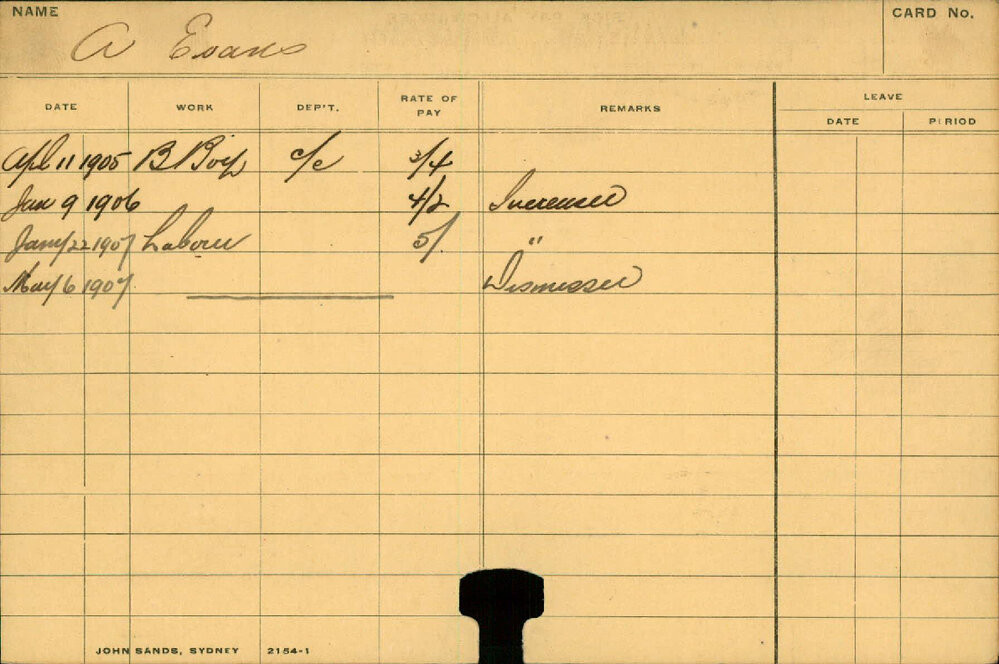 NAME
A Evans
CARD No.
DATE WORK DEP'T. RATE OF PAY REMARKS LEAVE
DATE PERIOD
Apl 11 1905 B Boy c/c 3/4
Jan 9 1906 4/2 Increased
Jany 22 1907 Labour 5/ "
May 6 1907 Dismissed
JOHN SANDS, SYDNEY 2154-1